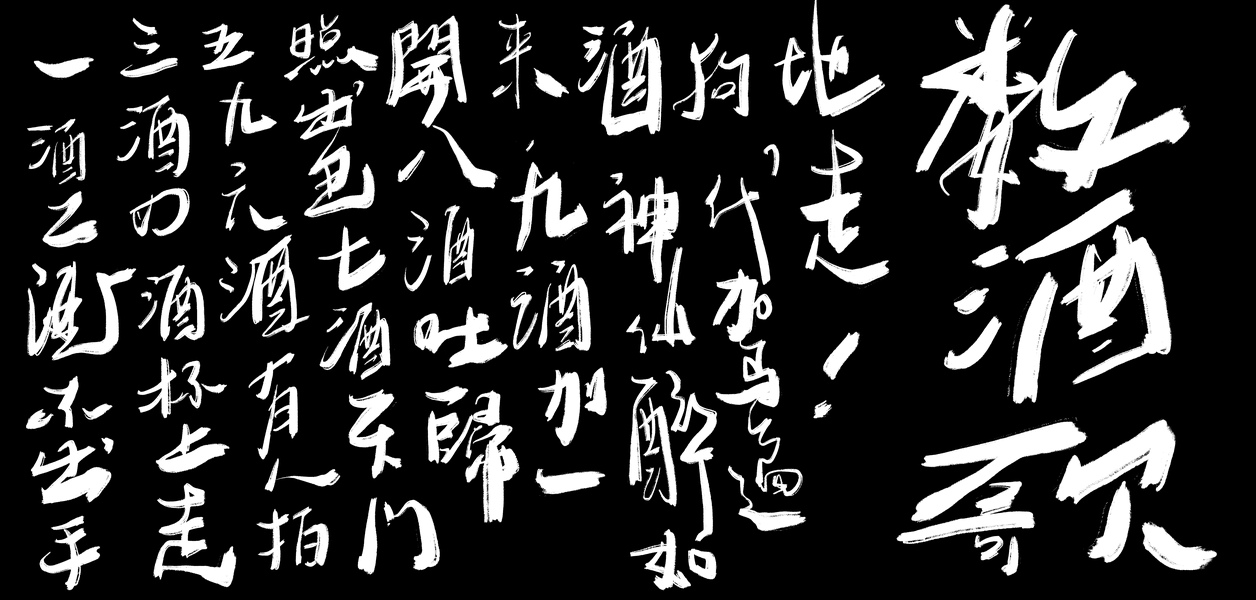 數酒歌
一酒二酒不出手
三酒四酒杯上走
五九六酒有人拍
照出色七酒天门
開八酒吐歸
来九酒加一
酒神仙醉如
狗代加马過
地走！